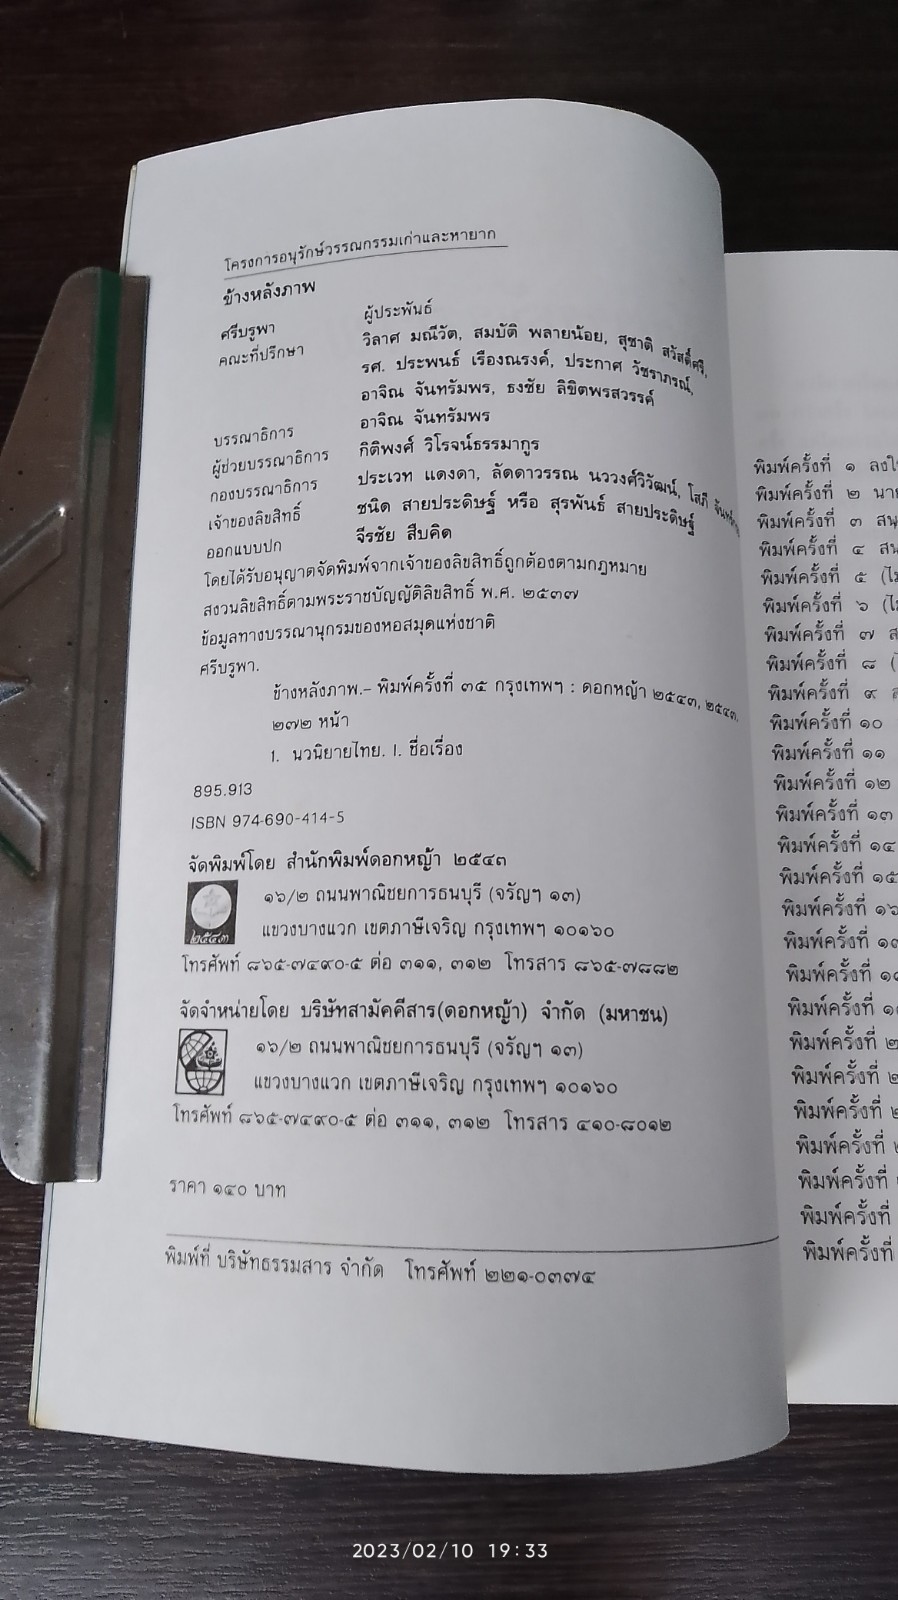 โครงการอนุรักษ์วรรณกรรมเก่าและหายาก
ข้างหลังภาพ
ศรีบรูพา ผู้ประพันธ์
คณะที่ปรึกษา วิลาศ มณีวัต, สมบัติ พลายน้อย, สุชาติ สวัสดิ์ศรี,
รศ. ประพนธ์ เรืองณรงค์, ประกาศ วัชราภรณ์,
อาจิณ จันทรัมพร, ธงชัย ลิขิตพรสวรรค์
บรรณาธิการ อาจิณ จันทรัมพร
ผู้ช่วยบรรณาธิการ กิติพงศ์ วิโรจน์ธรรมากูร
กองบรรณาธิการ ประเวท แดงดา, ลัดดาวรรณ นววงศ์วิวัฒน์, โสภี
เจ้าของลิขสิทธิ์ ชนิด สายประดิษฐ์ หรือ สุรพันธ์ สายประดิษฐ์
ออกแบบปก จีรชัย สืบคิด
โดยได้รับอนุญาตจัดพิมพ์จากเจ้าของลิขสิทธิ์ถูกต้องตามกฎหมาย
สงวนลิขสิทธิ์ตามพระราชบัญญัติลิขสิทธิ์ พ.ศ. ๒๕๓๗
ข้อมูลทางบรรณานุกรมของหอสมุดแห่งชาติ
ศรีบรูพา.
ข้างหลังภาพ.– พิมพ์ครั้งที่ ๓๕ กรุงเทพฯ : ดอกหญ้า ๒๕๔๓, ๒๕๔๓.
๒๗๒ หน้า
1. นวนิยายไทย. I. ชื่อเรื่อง
895.913
ISBN 974-690-414-5
จัดพิมพ์โดย สำนักพิมพ์ดอกหญ้า ๒๕๔๓
๒๕๔๓
๑๖/๒ ถนนพาณิชยการธนบุรี (จรัญฯ ๑๓)
แขวงบางแวก เขตภาษีเจริญ กรุงเทพฯ ๑๐๑๖๐
โทรศัพท์ ๘๖๕-๗๔๙๐-๕ ต่อ ๓๑๑, ๓๑๒ โทรสาร ๘๖๕-๗๘๘๒
จัดจำหน่ายโดย บริษัทสามัคคีสาร(ดอกหญ้า) จำกัด (มหาชน)
๑๖/๒ ถนนพาณิชยการธนบุรี (จรัญฯ ๑๓)
แขวงบางแวก เขตภาษีเจริญ กรุงเทพฯ ๑๐๑๖๐
โทรศัพท์ ๘๖๕-๗๔๙๐-๕ ต่อ ๓๑๑, ๓๑๒ โทรสาร ๔๑๐-๘๐๑๒
ราคา ๑๔๐ บาท
พิมพ์ที่ บริษัทธรรมสาร จำกัด โทรศัพท์ ๒๒๑-๐๓๗๔
พิมพ์ครั้งที่ ๑
พิมพ์ครั้งที่ ๒
พิมพ์ครั้งที่ ๓
พิมพ์ครั้งที่ ๔
พิมพ์ครั้งที่ ๕
พิมพ์ครั้งที่ ๖
พิมพ์ครั้งที่ ๗
พิมพ์ครั้งที่ ๘
พิมพ์ครั้งที่ ๙
พิมพ์ครั้งที่ ๑๐
พิมพ์ครั้งที่ ๑๑
พิมพ์ครั้งที่ ๑๒
พิมพ์ครั้งที่ ๑๓
พิมพ์ครั้งที่ ๑๔
พิมพ์ครั้งที่ ๑๕
พิมพ์ครั้งที่ ๑๖
พิมพ์ครั้งที่
พิมพ์ครั้งที่
พิมพ์ครั้งที่
พิมพ์ครั้งที่
พิมพ์ครั้งที่
พิมพ์ครั้งที่
พิมพ์ครั้งที่
พิมพ์ครั้งที่
พิมพ์ครั้งที่
พิมพ์ครั้งที่
2023/02/10 19:33